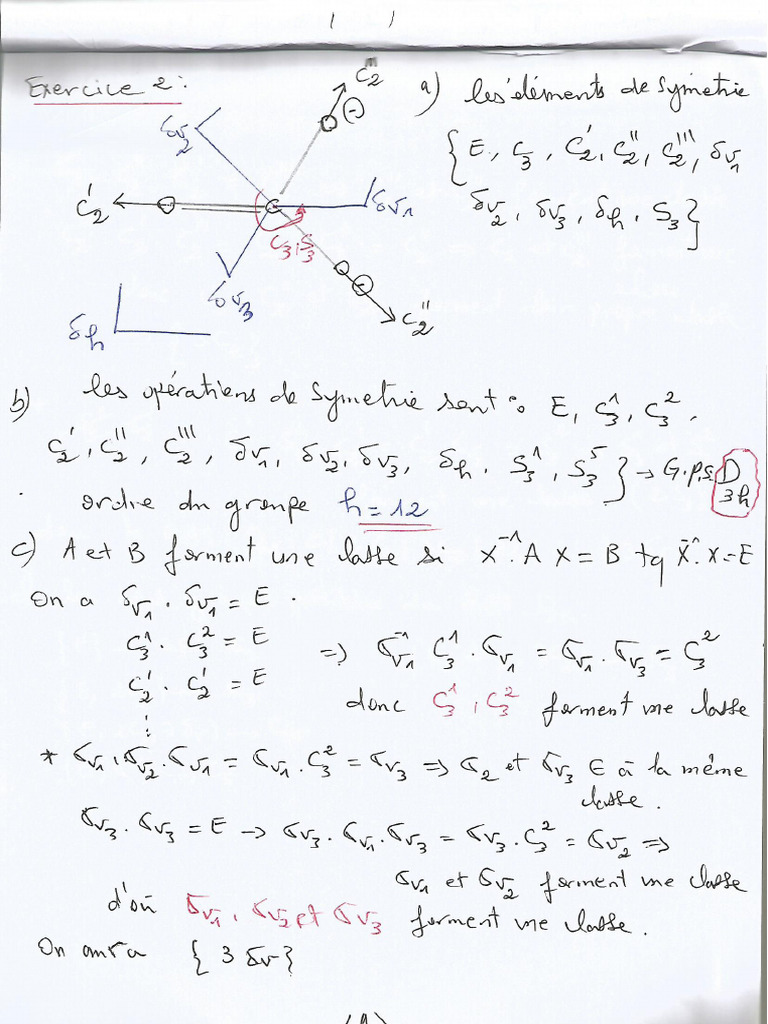 Exercice 2 :
C₂'''
⊖
σv₂
C₂'
C
σv₁
C₃, S₃
σv₃
σh
C₂''
a) les éléments de Symetrie
{ E, C₃, C₂', C₂'', C₂''', σv₁
σv₂, σv₃, σh, S₃ }
b) les opératiens de Symetrie sont : E, C₃¹, C₃²,
C₂', C₂'', C₂''', σv₁, σv₂, σv₃, σh, S₃¹, S₃⁵ } → G.p.s D₃h
ordre du groupe h = 12
c) A et B forment une classe si X⁻¹.A X = B tq X⁻¹.X = E
On a σv₁ . σv₁ = E .
C₃¹ . C₃² = E => σv₁⁻¹ C₃¹ . σv₁ = σv₁ . σv₃ = C₃²
C₂' . C₂' = E donc C₃¹, C₃² forment une classe
⋮
* σv₁, σv₂ . σv₁ = σv₁ . C₃² = σv₃ => σ₂ et σv₃ ∈ à la même
classe .
σv₃ . σv₃ = E → σv₃ . σv₁ . σv₃ = σv₃ . C₃² = σv₂ =>
σv₁ et σv₂ forment une classe
d'où σv₁, σv₂ et σv₃ forment une classe .
On aura { 3 σv }
(9)